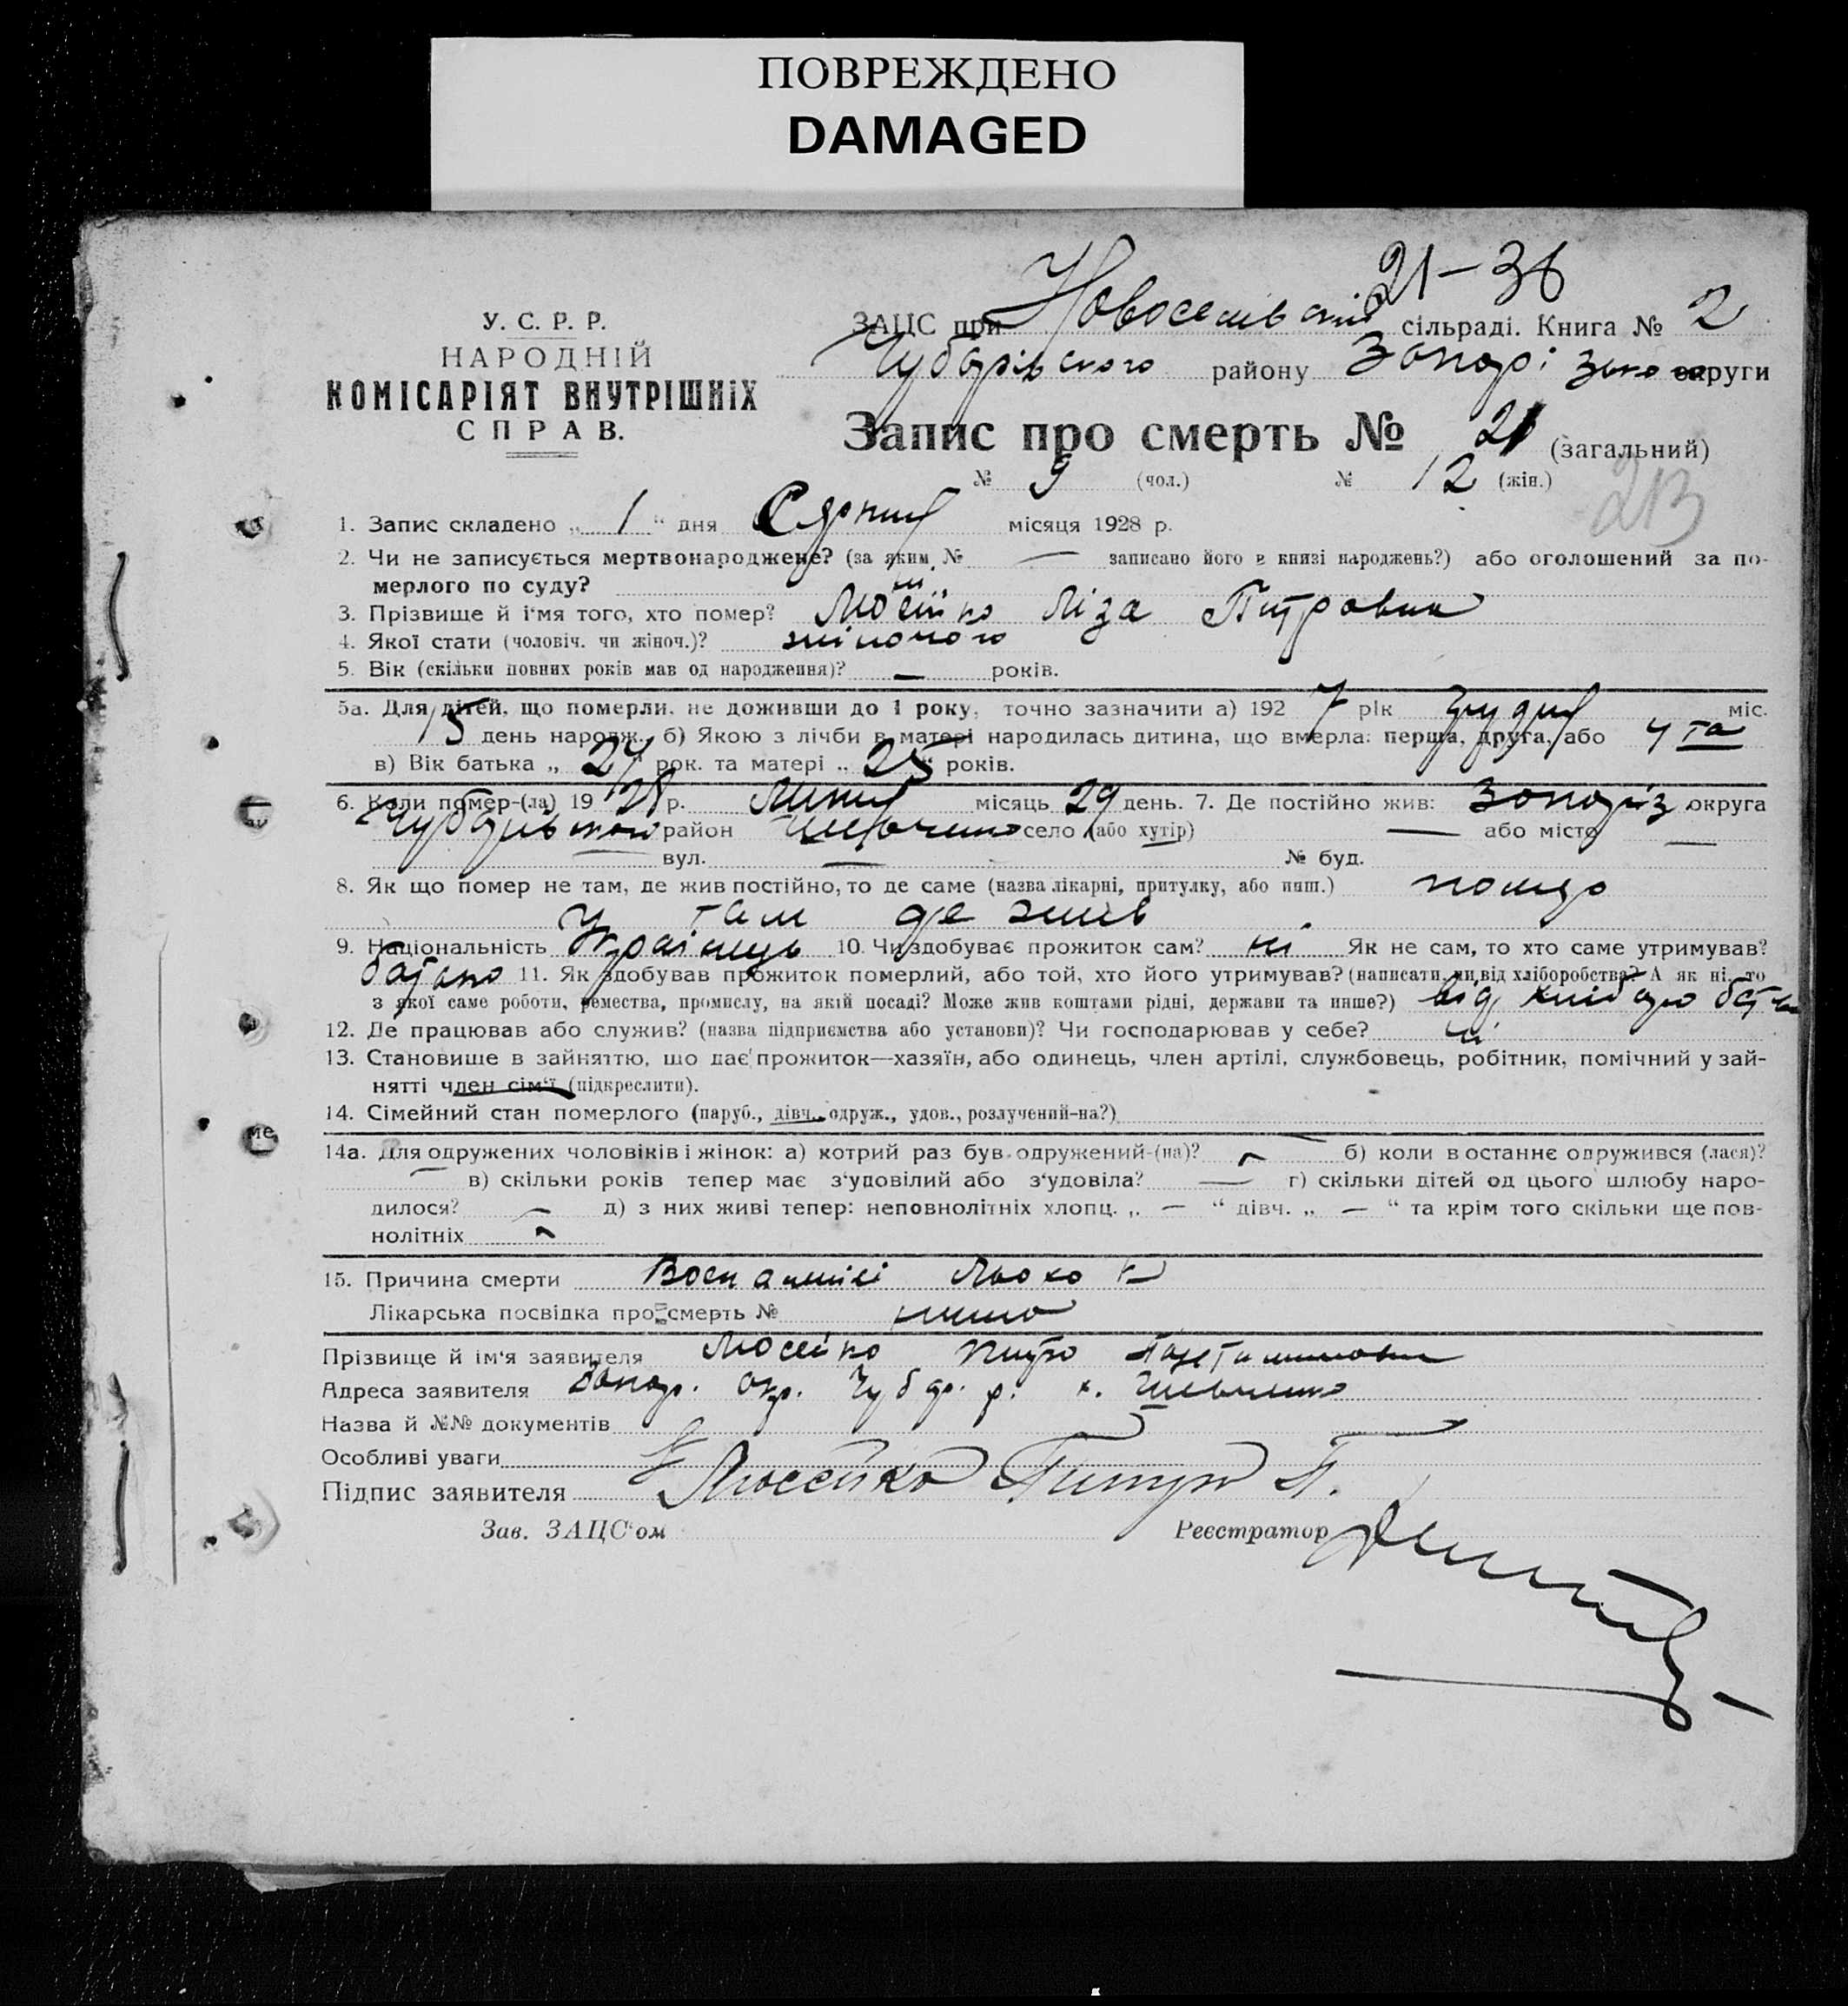 ПОВРЕЖДЕНО
DAMAGED
21-36
У. С. Р. Р.
НАРОДНІЙ
КОМІСАРІЯТ ВНУТРІШНІХ
СПРАВ.
ЗАЦС при Новоселівській сільраді. Книга № 2
Чубарівського району Запорізького округи
Запис про смерть № 21 (загальний)
№ 9 (чол.) № 12 (жін.)
213
1. Запис складено „ 1 “ дня Серпня місяця 1928 р.
2. Чи не записується мертвонароджене? (за яким № — записано його в книзі народжень?) або оголошений за по-
мерлого по суду?
3. Прізвище й і'мя того, хто помер? Ліза Петровна
4. Якої стати (чоловіч. чи жіноч.)? жіночого
5. Вік (скільки повних років мав од народження)? — років.
5а. Для дітей, що померли, не доживши до 1 року, точно зазначити а) 1927 рік Грудня міс.
15 день народж. б) Якою з лічби в матері народилась дитина, що вмерла: перша, друга, або 4 та
в) Вік батька „ 24 “ рок. та матері „ 25 “ років.
6. Коли помер-(ла) 1928 р. Липня місяць 29 день. 7. Де постійно жив: Запоріз округа
Чубарівського район Шевченко село (або хутір) — або місто —
— вул. — № буд.
8. Як що помер не там, де жив постійно, то де саме (назва лікарні, притулку, або инш.) помер
там де жив
9. Національність Українець 10. Чи здобуває прожиток сам? ні Як не сам, то хто саме утримував?
батько 11. Як здобував прожиток померлий, або той, хто його утримував? (написати, чи від хліборобства? А як ні, то
з якої саме роботи, ремества, промислу, на якій посаді? Може жив коштами рідні, держави та инше?) від хлібороб батька
12. Де працював або служив? (назва підприємства або установи)? Чи господарював у себе? ні
13. Становище в зайняттю, що дає прожиток—хазяїн, або одинець, член артілі, службовець, робітник, помічний у зай-
нятті член сім'ї (підкреслити).
14. Сімейний стан померлого (паруб., дівч., одруж., удов., розлучений-на?)
14а. Для одружених чоловіків і жінок: а) котрий раз був одружений-(на)? — б) коли в останнє одружився (лася)?
— в) скільки років тепер має з'удовілий або з'удовіла? — г) скільки дітей од цього шлюбу наро-
дилося? — д) з них живі тепер: неповнолітніх хлопц. „ — “ дівч. „ — “ та крім того скільки ще пов-
нолітніх —
15. Причина смерти
Лікарська посвідка про смерть № нима
Прізвище й ім'я заявителя Люсейко Петро
Адреса заявителя Запор. окр. Чубар. р. х. Шевченко
Назва й №№ документів
Особливі уваги
Підпис заявителя Люсейко Петро П.
Зав. ЗАЦС'ом Реєстратор